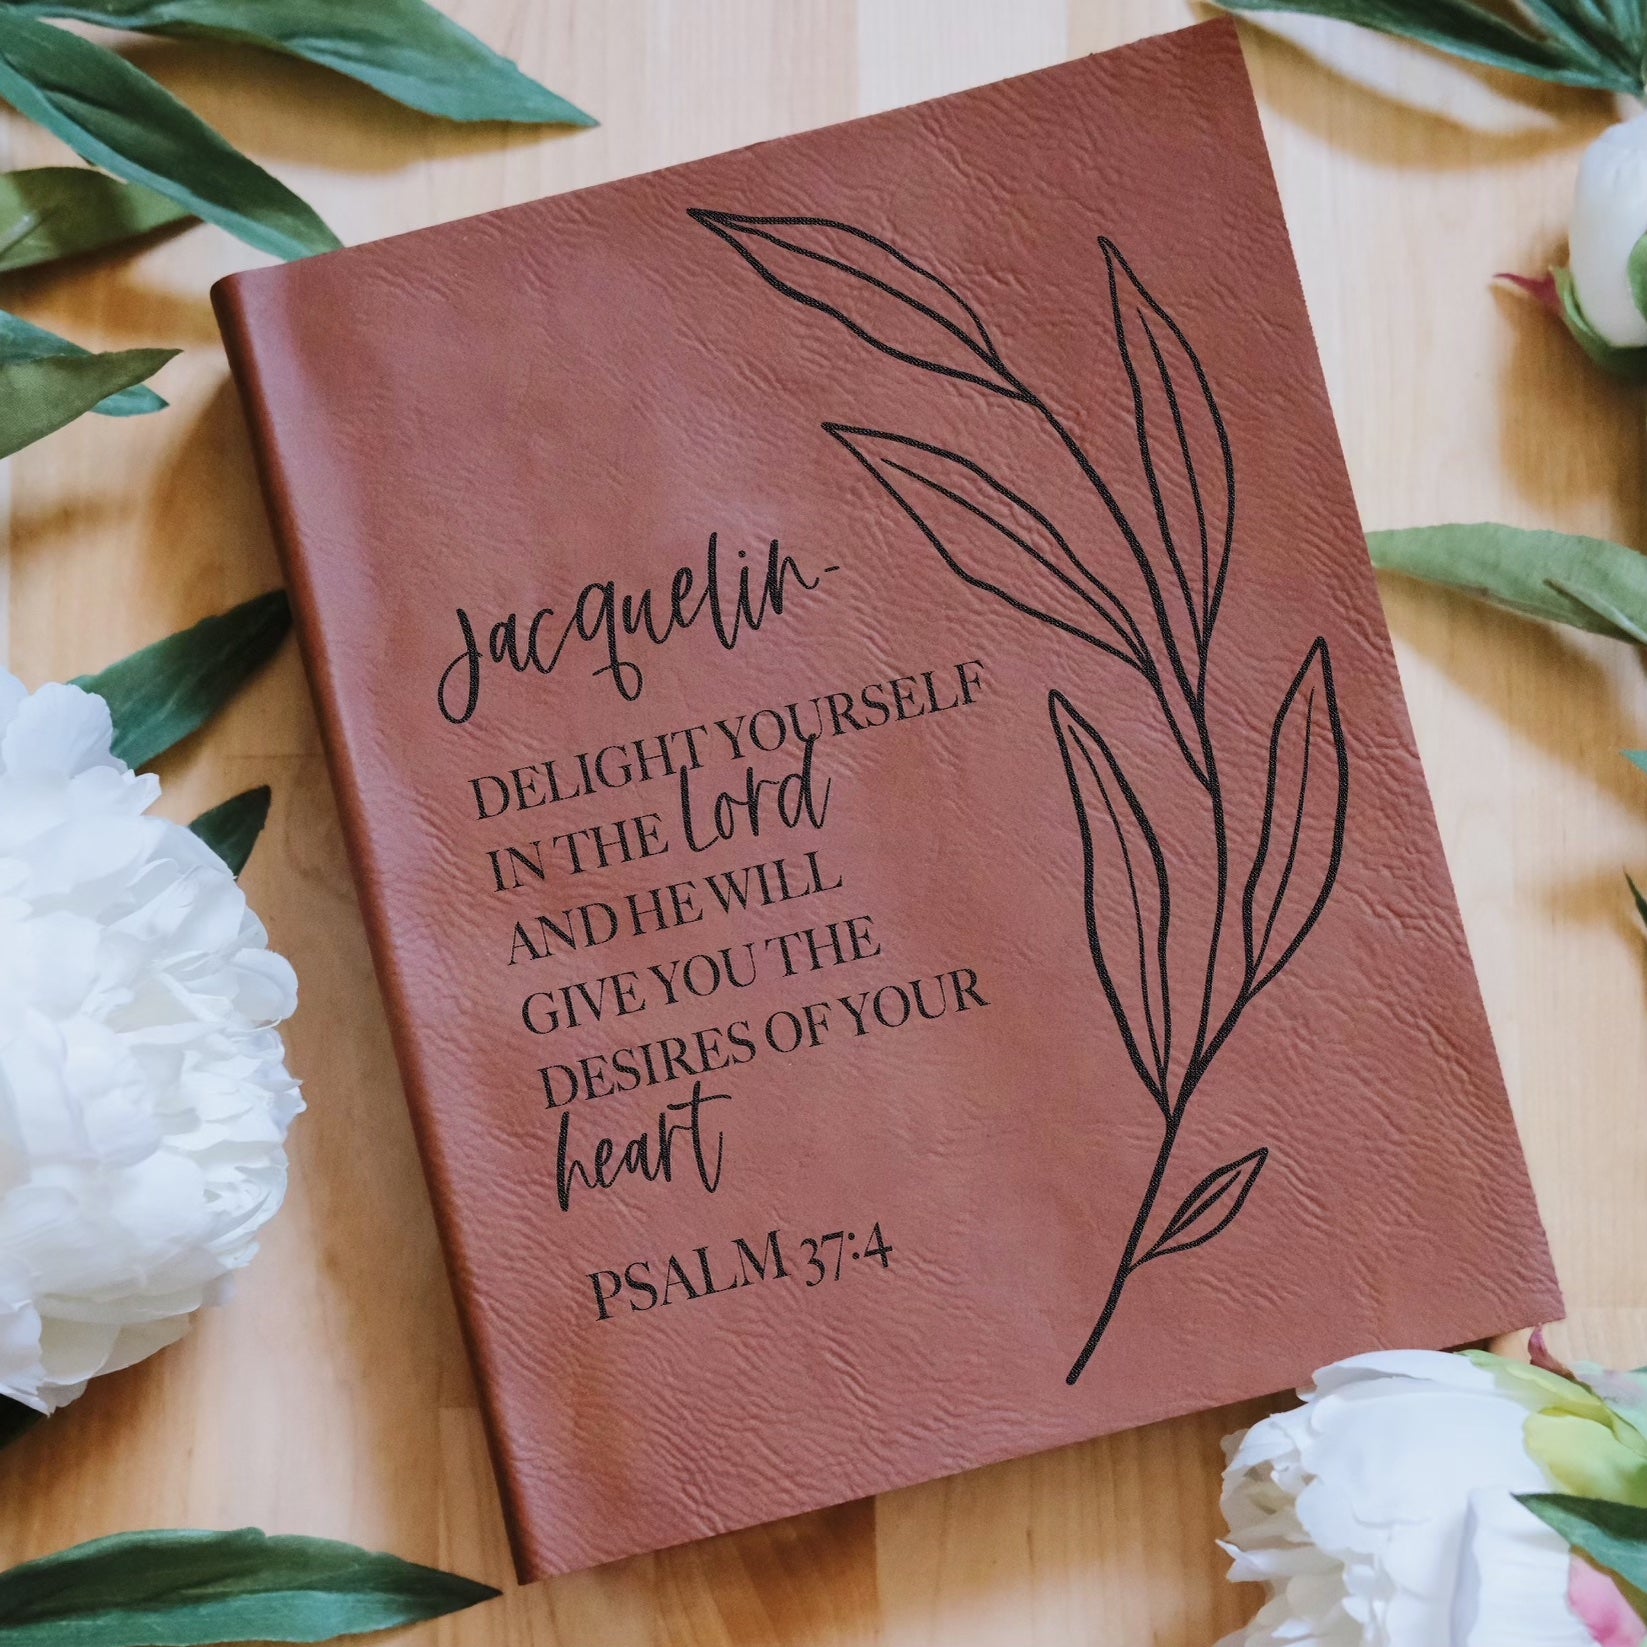 Jacquelin-
DELIGHT YOURSELF
IN THE Lord
AND HE WILL
GIVE YOU THE
DESIRES OF YOUR
heart
PSALM 37:4